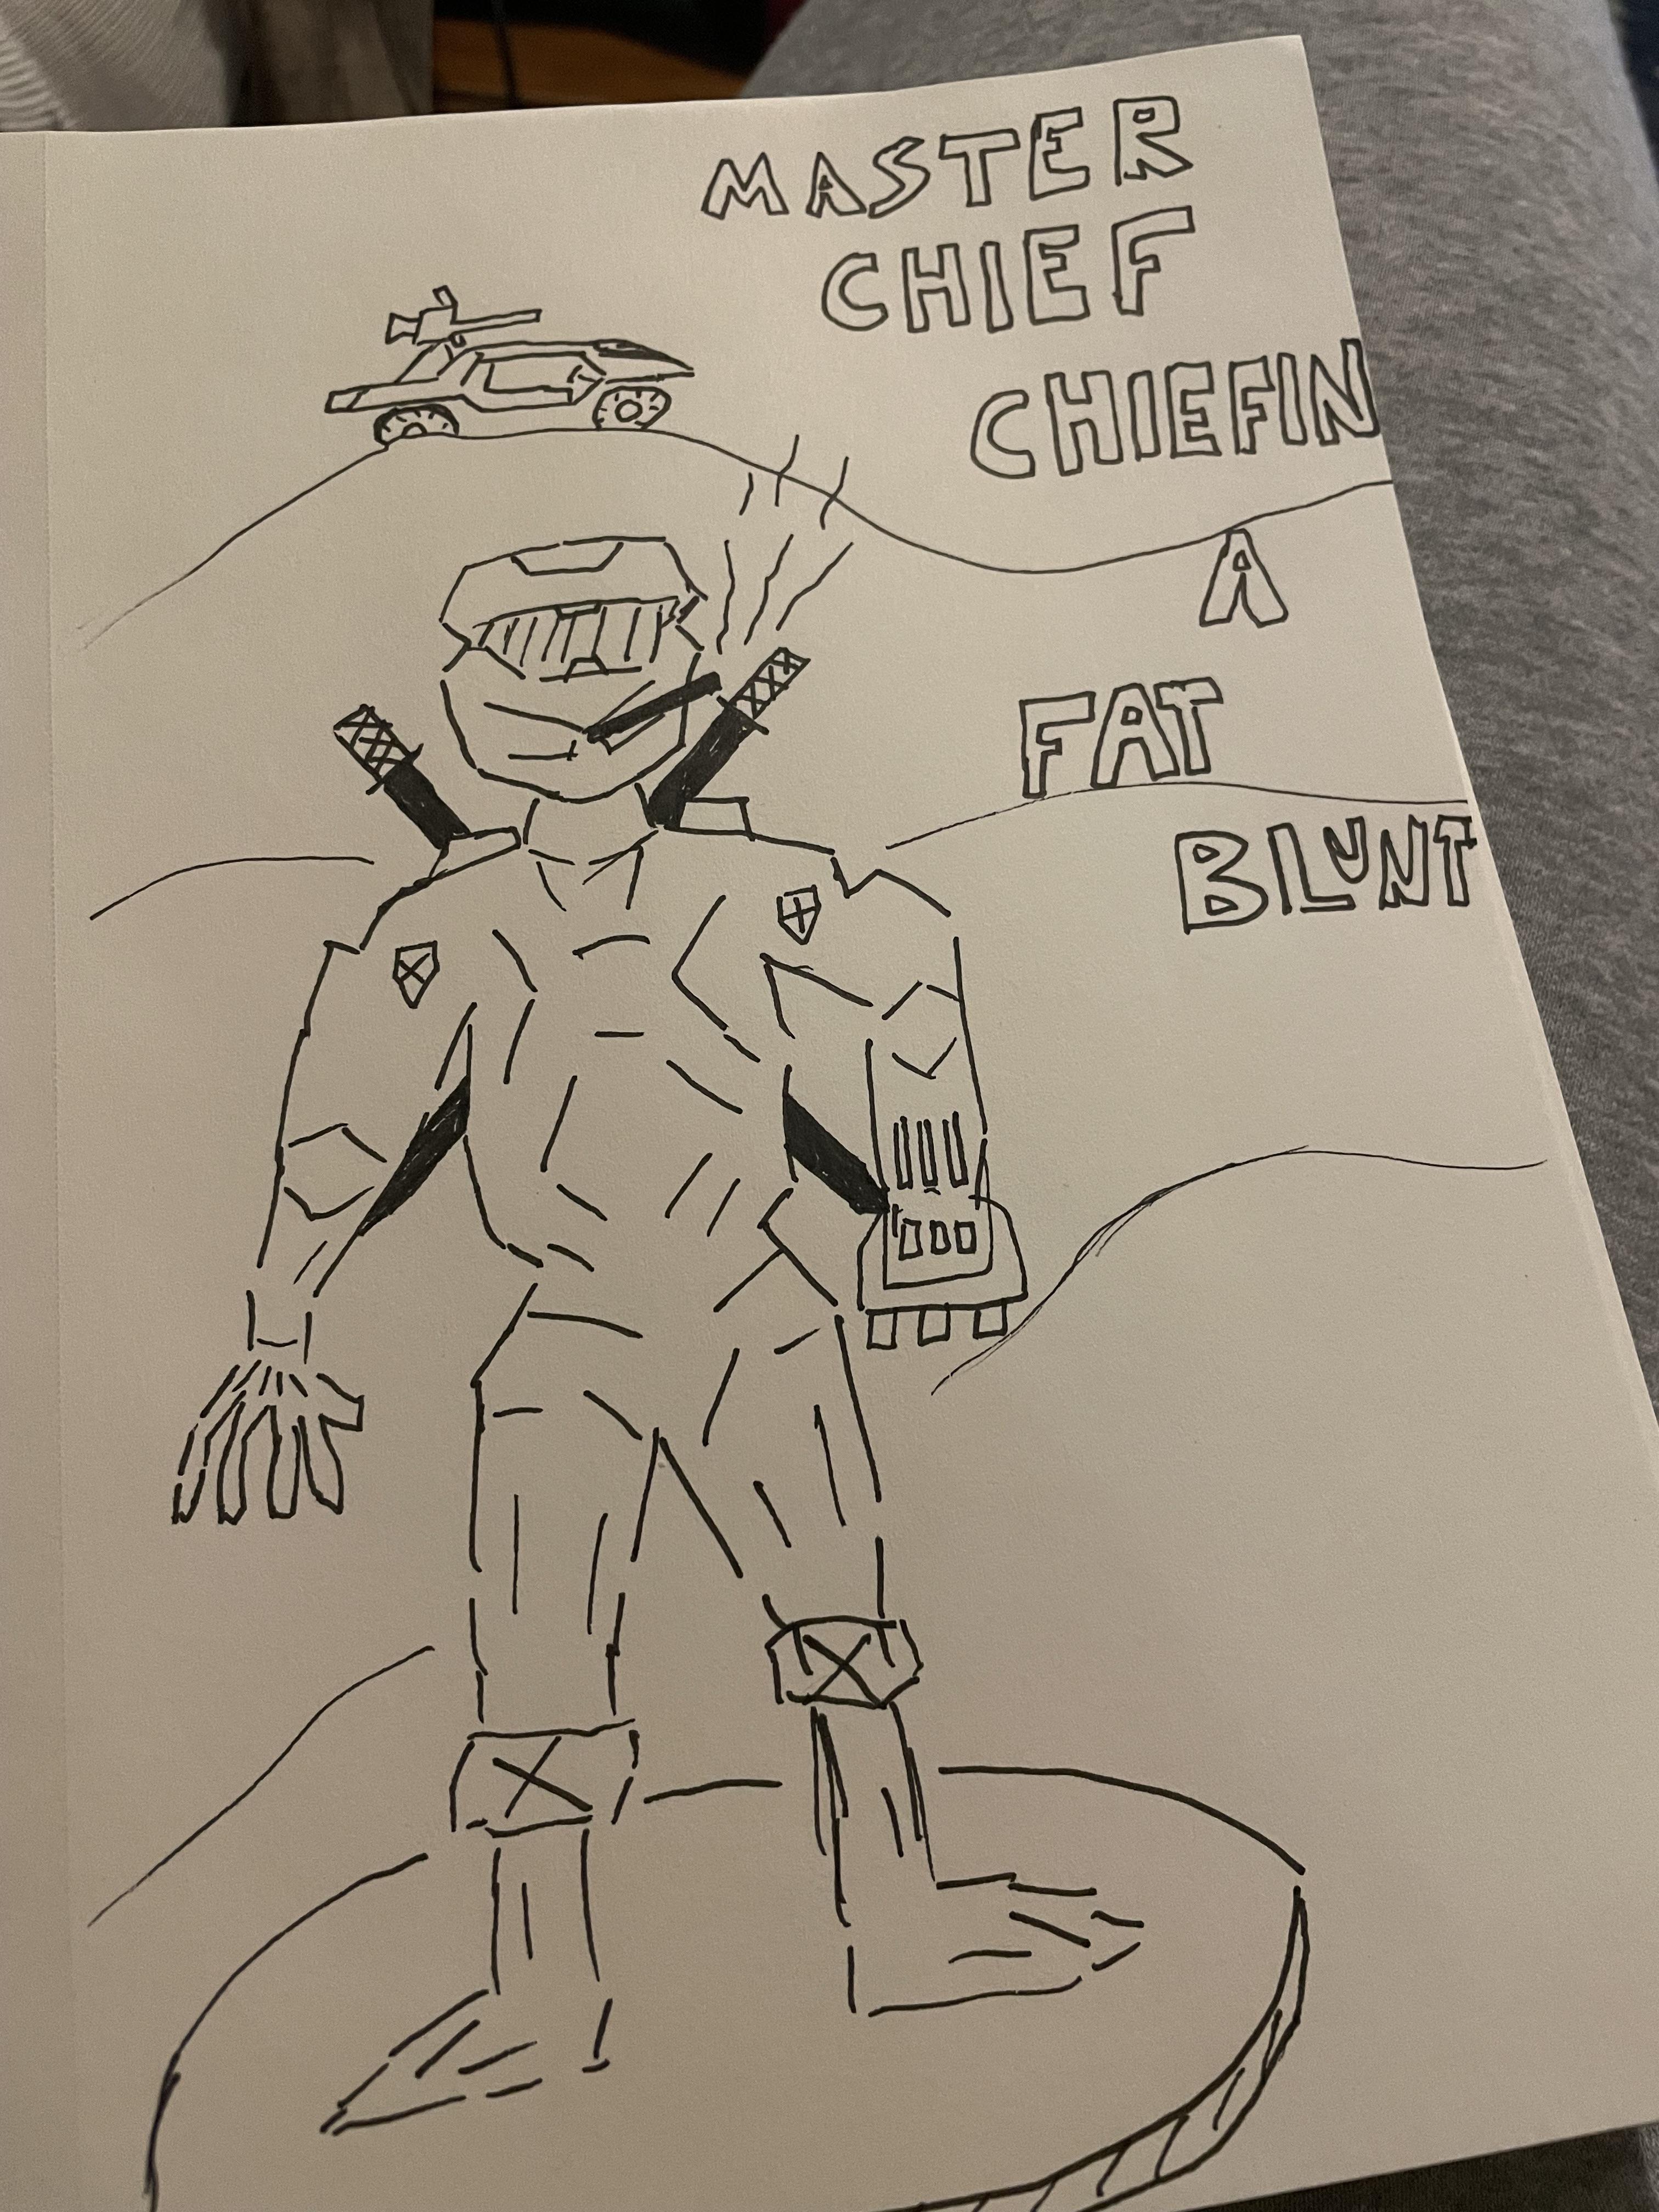 MASTER
CHIEF
CHIEFIN
A
FAT
BLUNT